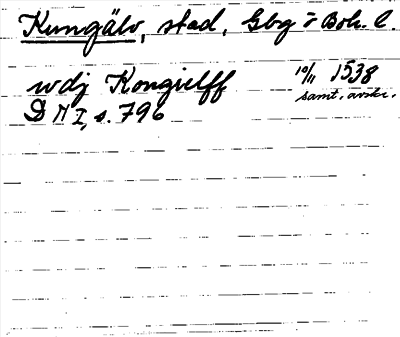 Kungälv, stad, Gbg o Boh. l.
wdj Kongielff 10/11 1538
samt. avskr.
DN I, s. 796